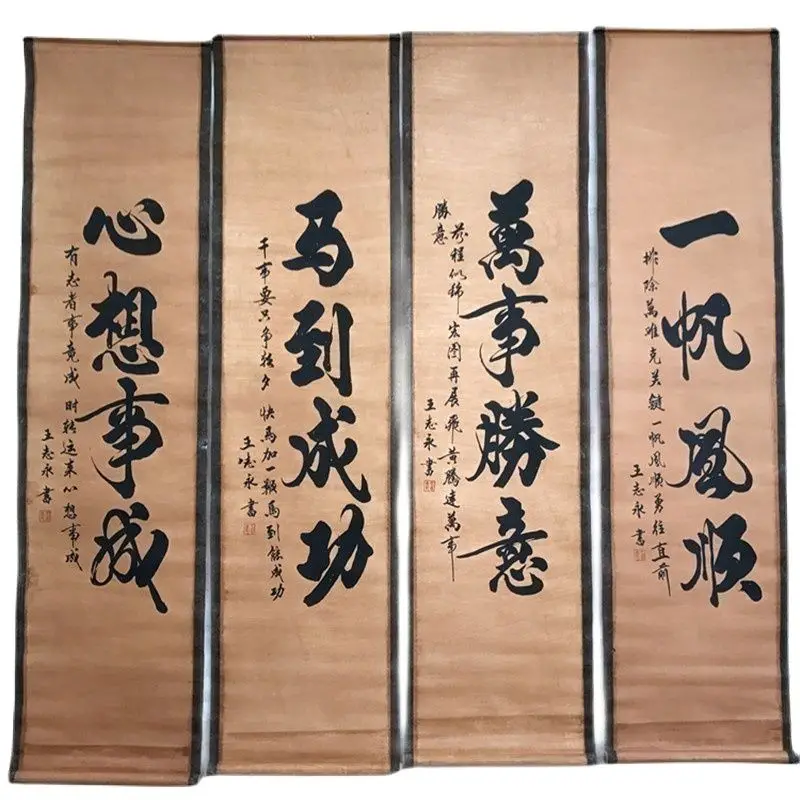 一帆风顺
排除萬难克关键一帆风顺勇往直前
王志永書
萬事勝意
前程似锦宏图再展飛黄腾達萬事
勝意
王志永書
马到成功
干事要只争朝夕快马加一鞭马到能成功
王志永書
心想事成
有志者事竟成时转运来心想事成
王志永書